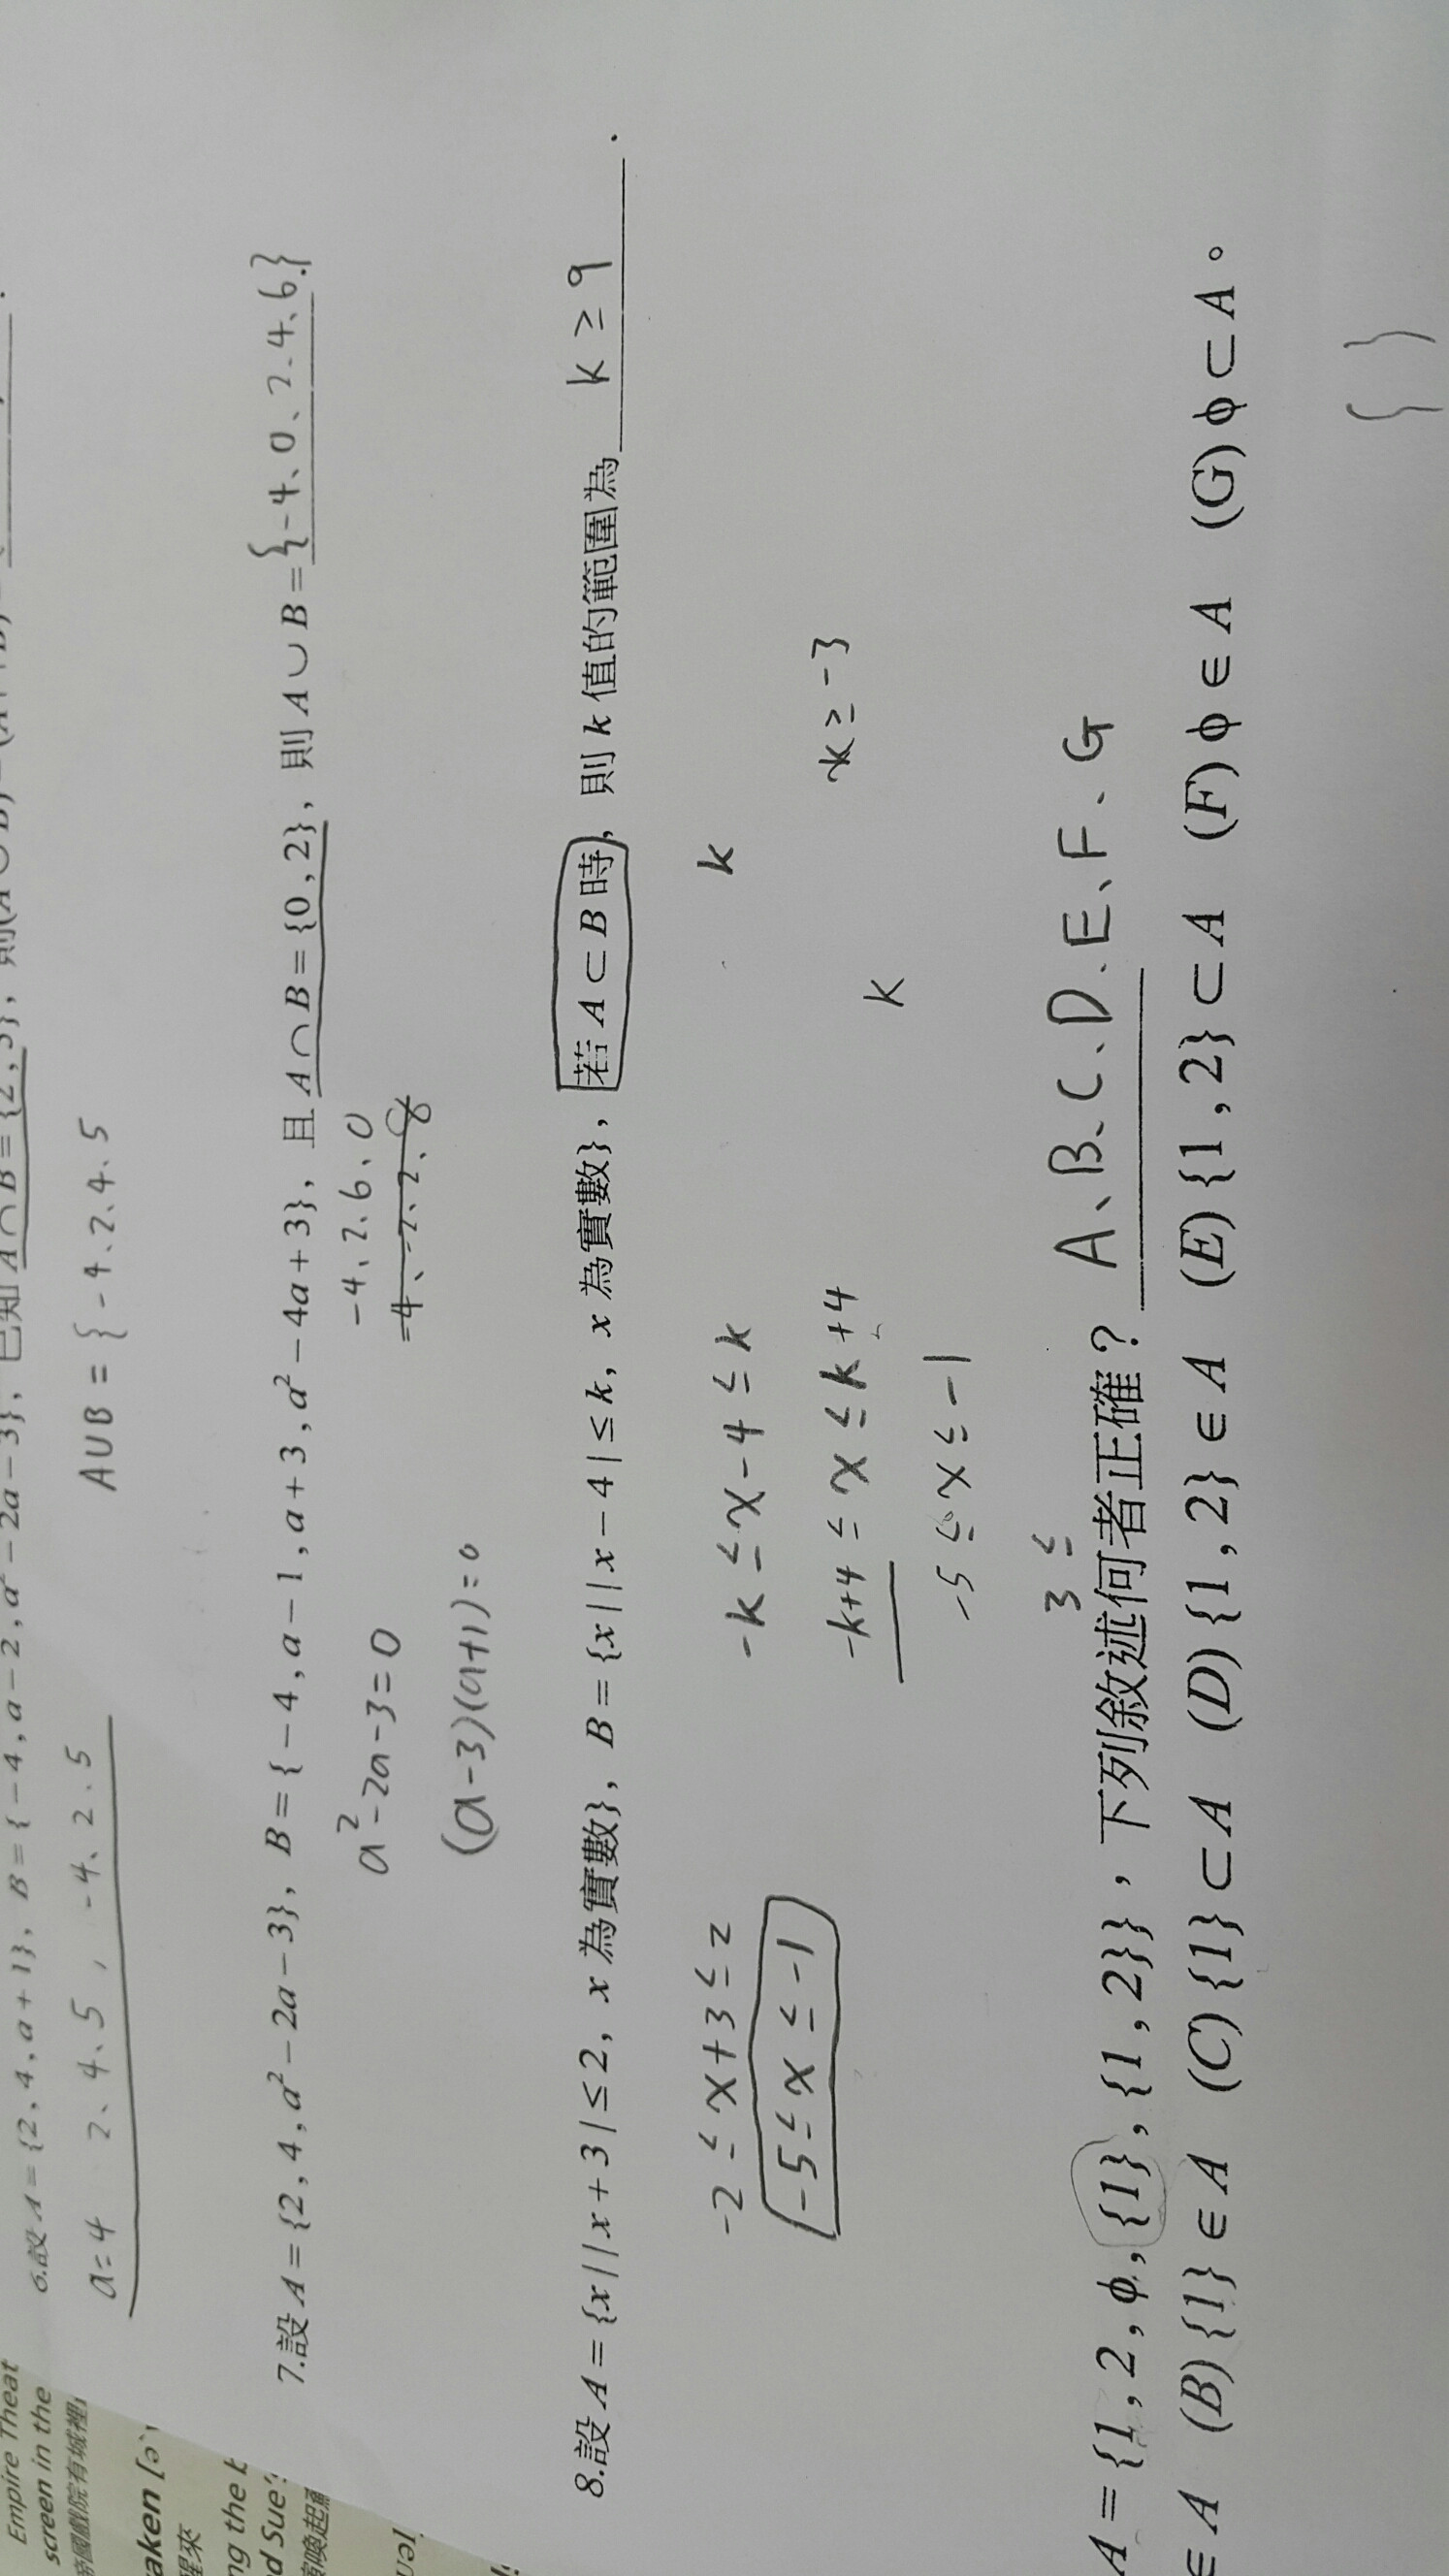 Empire Theat
screen in the
帝國戲院有城裡
aken [ə`
醒來
ng the t
d Sue'
6.設 A = {2 , 4 , a + 1}, B = { − 4 , a − 2 , a² − 2a − 3}, 已知 A ∩ B = {2 , 5}, 則
a=4 2、4、5 , -4、2、5
A∪B = { -4、2、4、5
7.設 A = {2 , 4 , a² − 2a − 3}, B = { − 4 , a − 1 , a + 3 , a² − 4a + 3}, 且 A ∩ B = {0 , 2}, 則 A ∪ B = {-4、0、2、4、6}.
-4、2、6、0
a²-2a-3=0
-4、-2、2、8
(a-3)(a+1)=0
8.設 A = {x | | x + 3 | ≤ 2 , x 為實數}, B = {x | | x − 4 | ≤ k , x 為實數}, 若 A ⊂ B 時, 則 k 值的範圍為 k ≥ 9 .
-2 ≤ x+3 ≤ 2 -k ≤ x-4 ≤ k k
-5 ≤ x ≤ -1 -k+4 ≤ x ≤ k+4 x ≥ -3
k
-5 ≤ x ≤ -1
3 ≤
A = {1 , 2 , ϕ , {1} , {1 , 2}} , 下列敘述何者正確? A、B、C、D、E、F、G
∈ A (B) {1} ∈ A (C) {1} ⊂ A (D) {1 , 2} ∈ A (E) {1 , 2} ⊂ A (F) ϕ ∈ A (G) ϕ ⊂ A 。
{ }